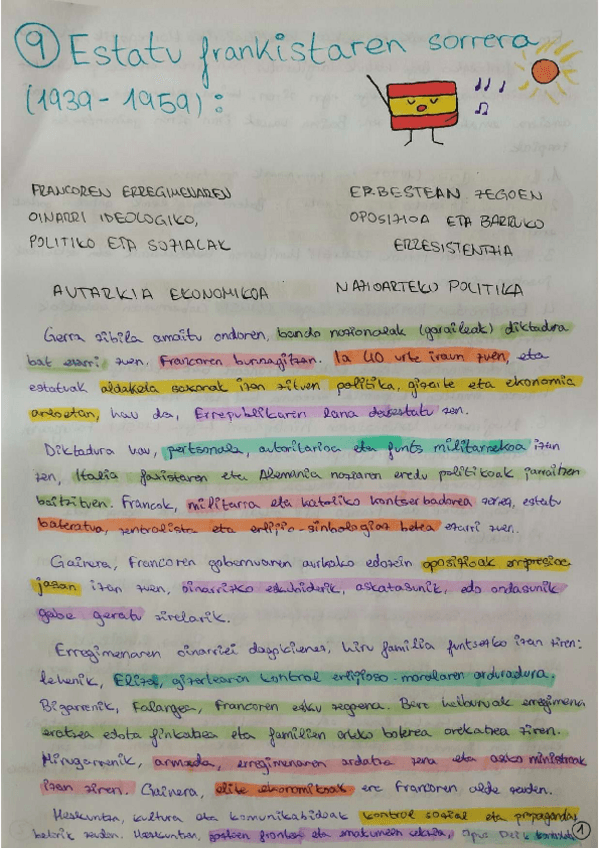 9 Estatu frankistaren sorrera
(1939-1959):
FRANCOREN ERREGIMENAREN
OINARRI IDEOLOGIKO,
POLITIKO ETA SOZIALAK
ERBESTEAN ZEGOEN
OPOSIZIOA ETA BARRUKO
ERRESISTENTZIA
AUTARKIA EKONOMIKOA
NAZIOARTEKO POLITIKA
Gerra zibila amaitu ondoren, bando nazionalak (garaileak) diktadura
bat ezarri zuen, Francoren buruzagitzan. Ia 40 urte iraun zuen, eta
estatuak aldaketa sakonak izan zituen politika, gizarte eta ekonomia
arloetan, hau da, Errepublikaren lana deuseztatu zen.
Diktadura hau, pertsonala, autoritarioa eta funts militarrekoa izan
zen, Italia faxistaren eta Alemania naziaren eredu politikoak jarraitzen
baitzituen. Francok, militarra eta katoliko kontserbadorea zenez, estatu
bateratua, zentralista eta erlijio-sinbologiaz betea ezarri zuen.
Gainera, Francoren gobernuaren aurkako edozein oposizioak errepresioa
jasan izan zuen, oinarrizko eskubiderik, askatasunik, edo ondasunik
gabe geratu zirelarik.
Erregimenaren oinarriei dagokienez, hiru familia funtsezko izan ziren:
lehenik, Eliza, gizartearen kontrol erlijioso-moralaren arduraduna.
Bigarrenik, Falangea, Francoren esku zegoena. Bere helburuak erregimena
eratzea edota finkatzea eta familien arteko boterea orekatzea ziren.
Hirugarrenik, armada, erregimenaren ardatza zena eta asko ministroak
izan ziren. Gainera, elite ekonomikoak ere Francoren alde zeuden.
Hezkuntza, kultura eta komunikabideak kontrol sozial eta propagandaz
beterik zeuden. Hezkuntzan, eta emakumeen Opus Dei
1